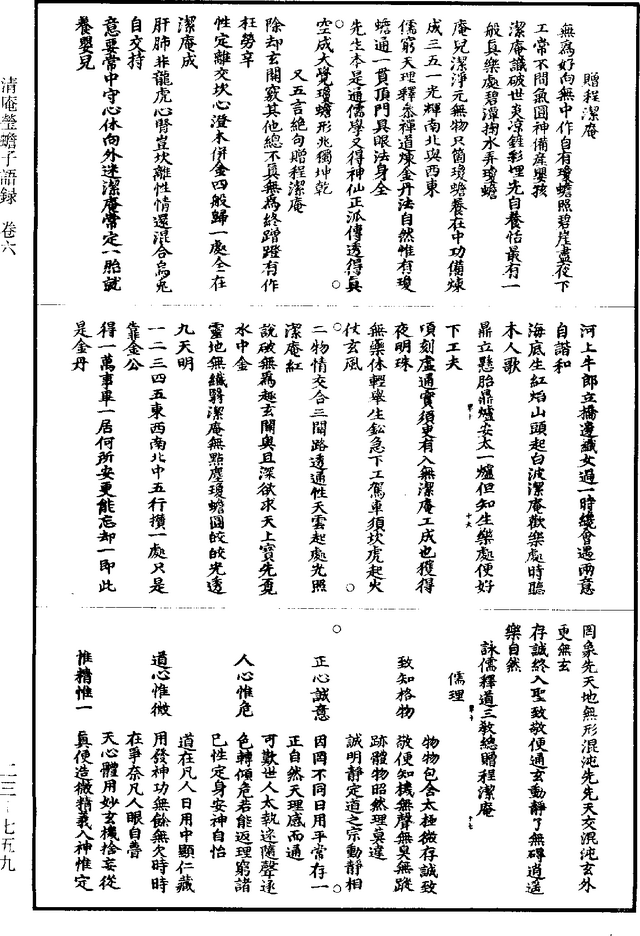 贈程潔庵
無為好向無中作自有瓊蟾照碧崖晝夜下
工常不間氣圓神備產嬰孩
潔庵識破世炎涼鏟彩埋光自養恬最有一
般真樂處碧潭掬水弄瓊蟾
庵兒潔淨元無物只箇瓊蟾養在中功備煉
成三五一光輝南北與西東
儒窮天理釋叅禪道煉金丹法自然惟有瓊
蟾通一貫頂門具眼法身全
先生本是通儒學又得神仙正派傳透得真
空成大覺瓊蟾形兆獨坤乾
又五言絕句贈程潔庵
除却玄關竅其他總不真無為終蹭蹬有作
枉勞辛
性定離交坎心澄木併金四般歸一處全在
潔庵成
肝肺非龍虎心腎豈坎離性情還混合烏兔
自交持
意要常中守心休向外迷潔庵常定一胎就
養嬰兒
河上牛郎立橋邊織女過一時纔會遇兩意
自諧和
海底生紅焰山頭起白波潔庵歡樂處時聽
木人歌
鼎立懸胎鼎爐安太一爐但知生藥處便好
下工夫
頃刻虛通實須更有入無潔庵工成也獲得
夜明珠
無藥休輕舉生鈆急下工駕車須坎虎起火
仗玄風
二物情交合三關路透通性天雲起處光照
潔庵紅
說破無為趣玄關奧且深欲求天上寶先覓
水中金
靈地無纖翳潔庵無點塵瓊蟾圓皎皎光透
九天明
一二三四五東西南北中五行攢一處只是
靠金公
得一萬事畢一居何所安更能忘却一即此
是金丹
罔象先天地無形混沌先先天交混沌玄外
更無玄
存誠終入聖致敬便通玄動靜了無礙逍遙
樂自然
詠儒釋道三教總贈程潔庵
儒理
物物包含太極微存誠致
致知格物
敬便知機無聲無臭無蹤
跡體物昭然理莫違
誠明靜定道之宗動靜相
正心誠意
因同不同日用平常存一
正自然天理感而通
可歎世人太執迷隨聲逐
人心惟危
色轉傾危若能返理窮諸
己性定身安神自怡
道在凡人日用中顯仁藏
道心惟微
用發神功無餘無欠時時
在爭奈凡人眼自瞢
天心體用妙玄機捨妄從
惟精惟一
真便造微精義入神惟定
清庵瑩蟾子語録 卷六
二三－七五九